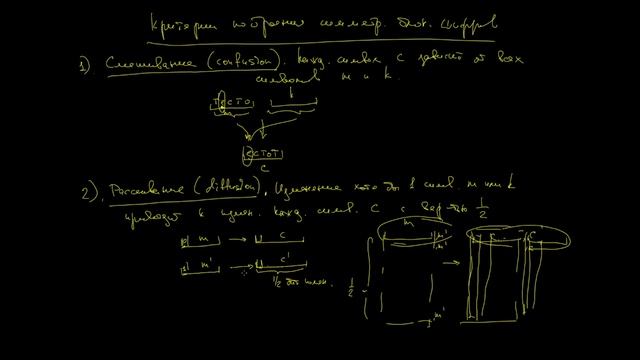 Критерии построения симметр. блок. шифров
1) Смешивание (confusion). Кажд. символ C зависит от всех
символов m и k.
k
C
2) Рассеивание (diffusion). Изменение хотя бы 1 симв. m или k
приводит к измен. кажд. симв. C с вер-тью 1/2
m → C
m' → C'
1/2 бит измен.
m
m'
1/2
m'